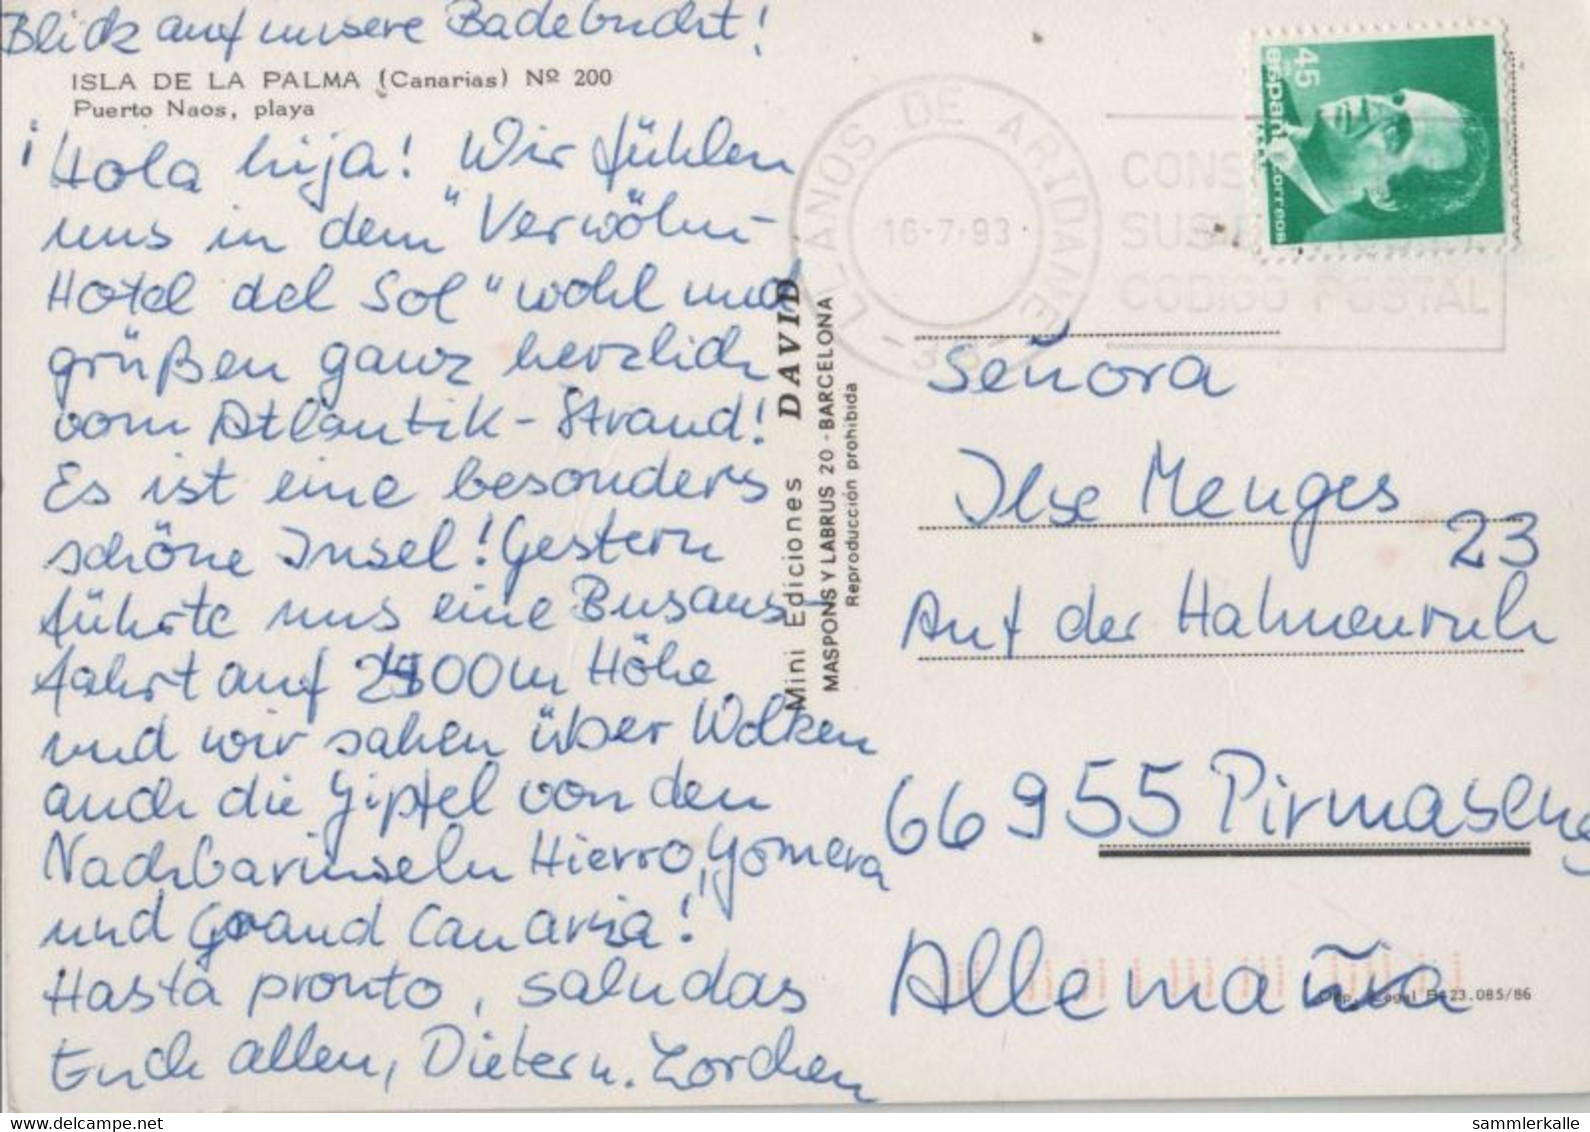 Blick auf unsere Badebucht!
ISLA DE LA PALMA (Canarias) Nº 200
Puerto Naos, playa
¡Hola hija! Wir fühlen
uns in dem "Verwöhn-
Hotel del Sol" wohl und
grüßen ganz herzlich
vom Atlantik-Strand!
Es ist eine besonders
schöne Insel! Gestern
führte uns eine Busaus-
fahrt auf 2400m Höhe
und wir sahen über Wolken
auch die Gipfel von den
Nachbarinseln Hierro, Gomera
und Grand Canaria!
Hasta pronto, saludas
Euch allen, Dieter u. Lorchen
Mini Ediciones DAVID
MASPONS Y LABRUS 20 - BARCELONA
Reproducción prohibida
LLANOS DE ARIDANE
16-7-93
CODIGO POSTAL
45
españa correos
Señora
Ilse Menges
23
Auf der Hahnenruh
66955 Pirmasens
Allemañia
Dep. Legal B-23.085/86
sammlerkalle